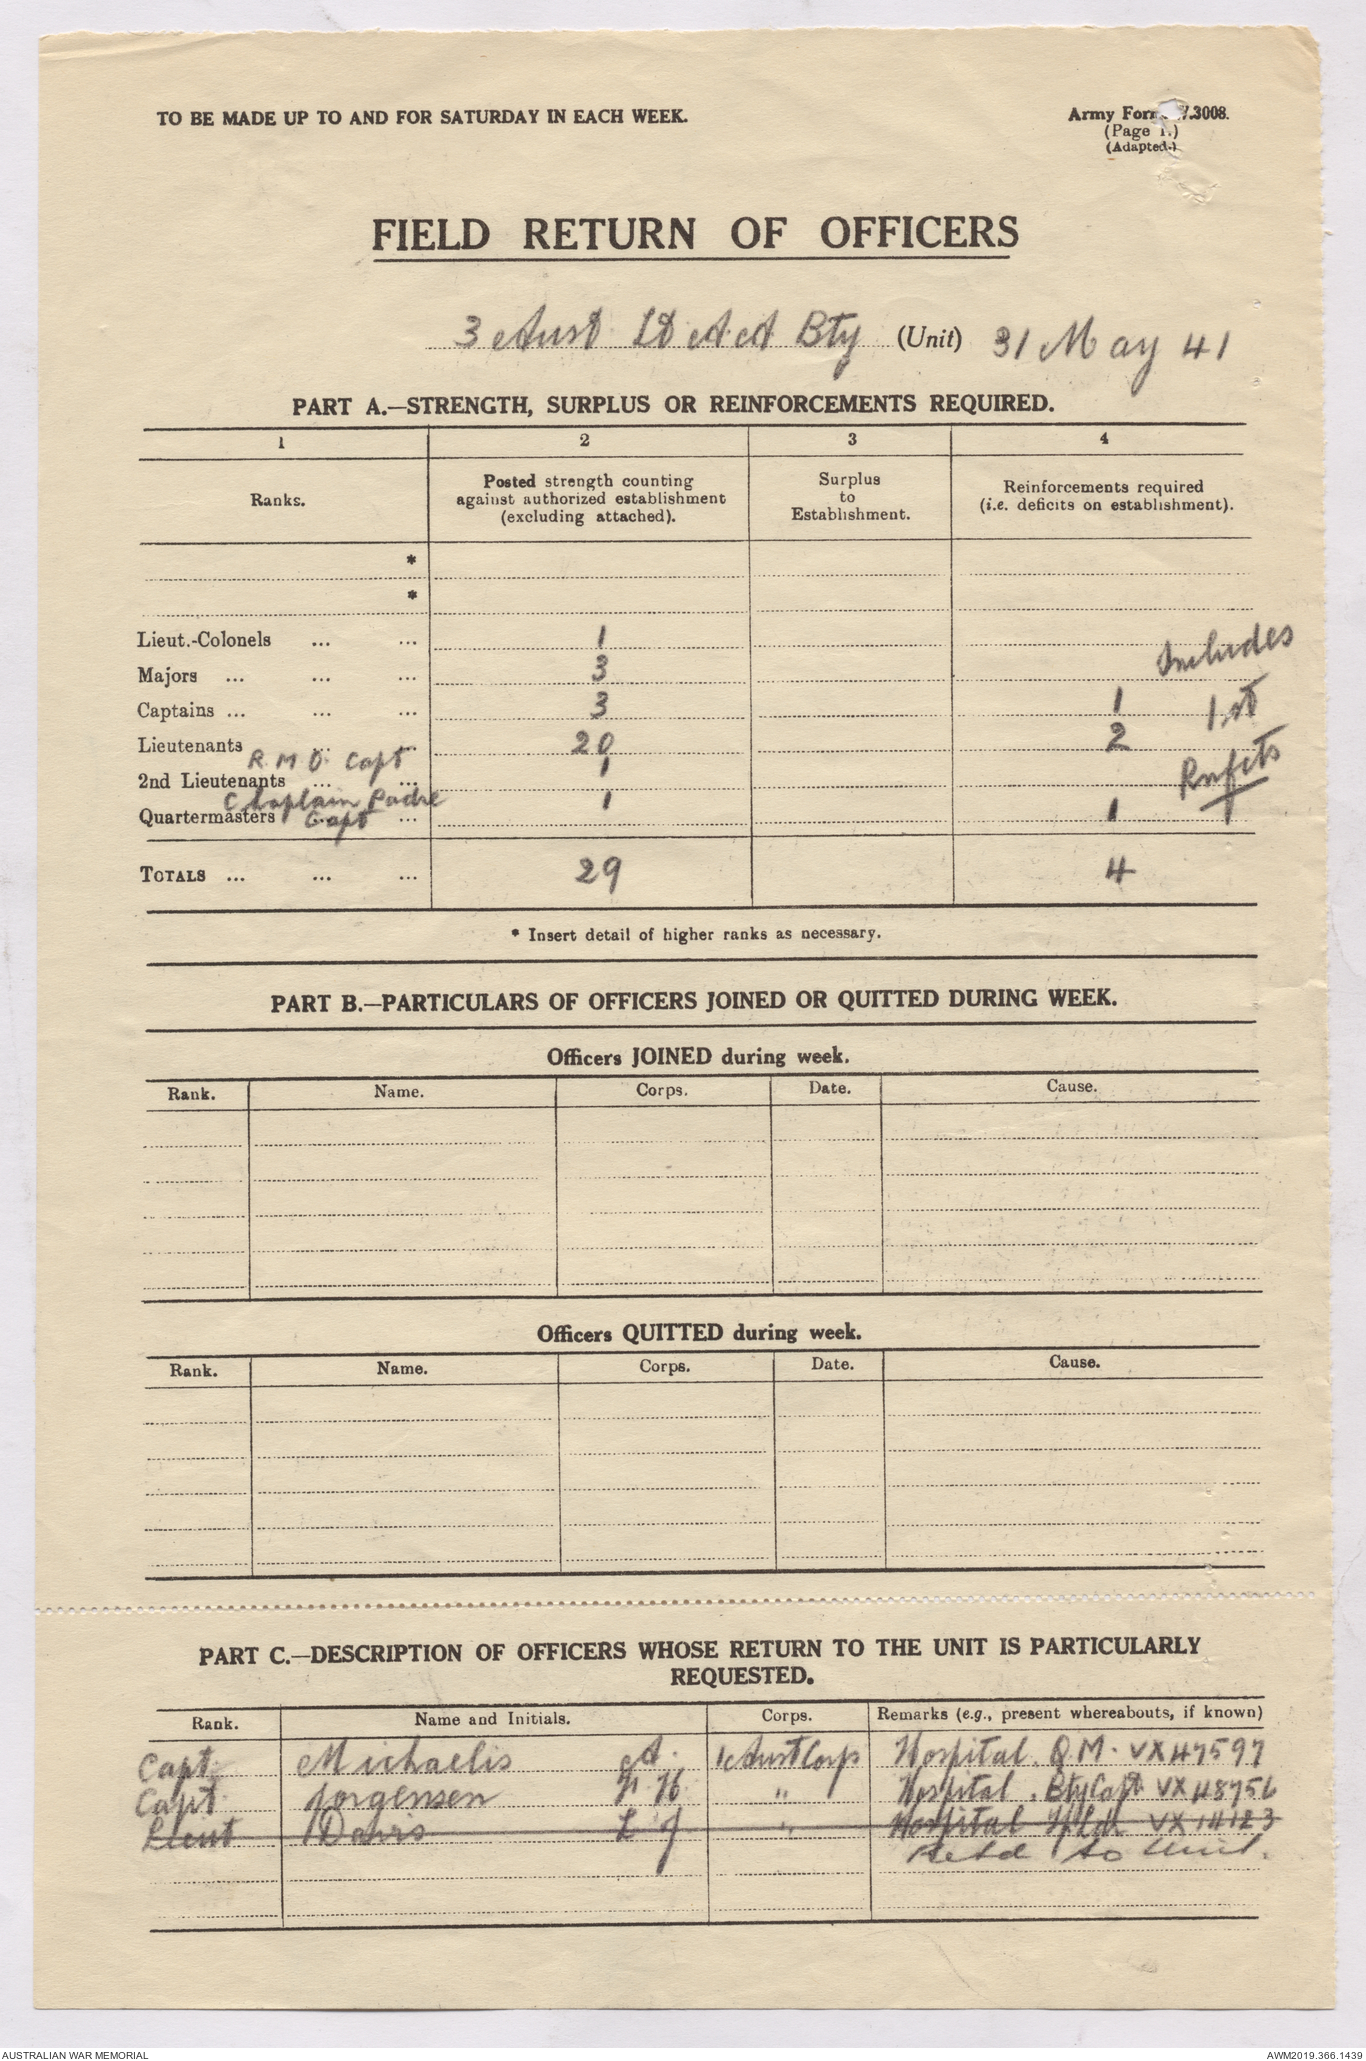 TO BE MADE UP TO AND FOR SATURDAY IN EACH WEEK.
Army Form W.3008.
(Page 1.)
(Adapted.)
FIELD RETURN OF OFFICERS
3 Aust Lt A A Bty (Unit) 31 May 41
PART A.—STRENGTH, SURPLUS OR REINFORCEMENTS REQUIRED.
1 2 3 4
Ranks. Posted strength counting against authorized establishment (excluding attached). Surplus to Establishment. Reinforcements required (i.e. deficits on establishment).
*
*
Lieut.-Colonels ... ... 1 Includes
Majors ... ... ... 3
Captains ... ... ... 3 1 1st
Lieutenants ... ... 20 2
R.M.O. Capt Rnfcts
2nd Lieutenants ... ... 1
Chaplain Padre
Quartermasters Capt ... 1 1
TOTALS ... ... ... 29 4
* Insert detail of higher ranks as necessary.
PART B.—PARTICULARS OF OFFICERS JOINED OR QUITTED DURING WEEK.
Officers JOINED during week.
Rank. Name. Corps. Date. Cause.
Officers QUITTED during week.
Rank. Name. Corps. Date. Cause.
PART C.—DESCRIPTION OF OFFICERS WHOSE RETURN TO THE UNIT IS PARTICULARLY
REQUESTED.
Rank. Name and Initials. Corps. Remarks (e.g., present whereabouts, if known)
Capt. Michaelis A. 1 Aust Corps Hospital. Q.M. VX47597
Capt. Jorgensen " Hospital. Bty Capt VX48756
Lieut Davis L J " Hospital VX14123
Retd to Unit.
AUSTRALIAN WAR MEMORIAL
AWM2019.366.1439